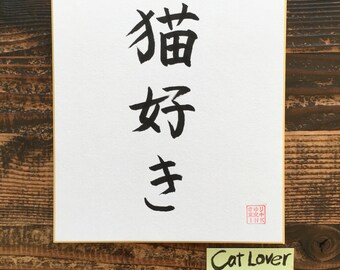 猫好き
Cat Lover